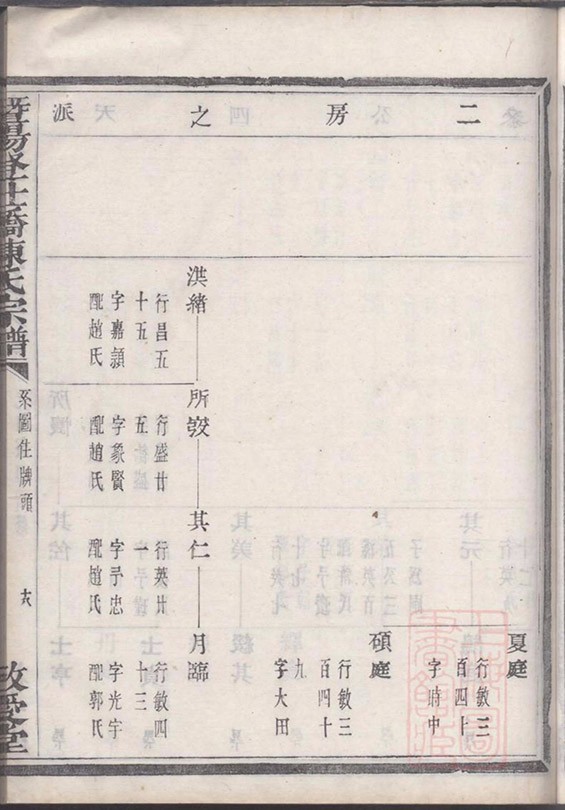 二房之派
夏庭
行敏三
百四十
字時中
碩庭
行敏三
百四十
九
字大田
洪緒
行昌五
十五
字嘉頴
配趙氏
所敎
行盛廿
五
字象賢
配趙氏
其仁
行英廿
一
字予忠
配趙氏
月臨
行敏四
十三
字光宇
配郭氏
暨陽登仕橋陳氏宗譜
系圖住牌頭
敬愛堂